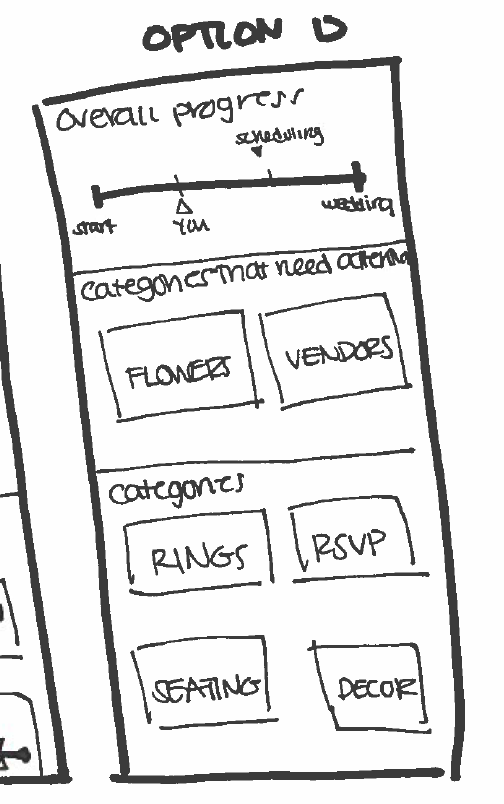 OPTION D
Overall progress
scheduling
start
YOU
wedding
categories that need attention
FLOWERS
VENDORS
categories
RINGS
RSVP
SEATING
DECOR